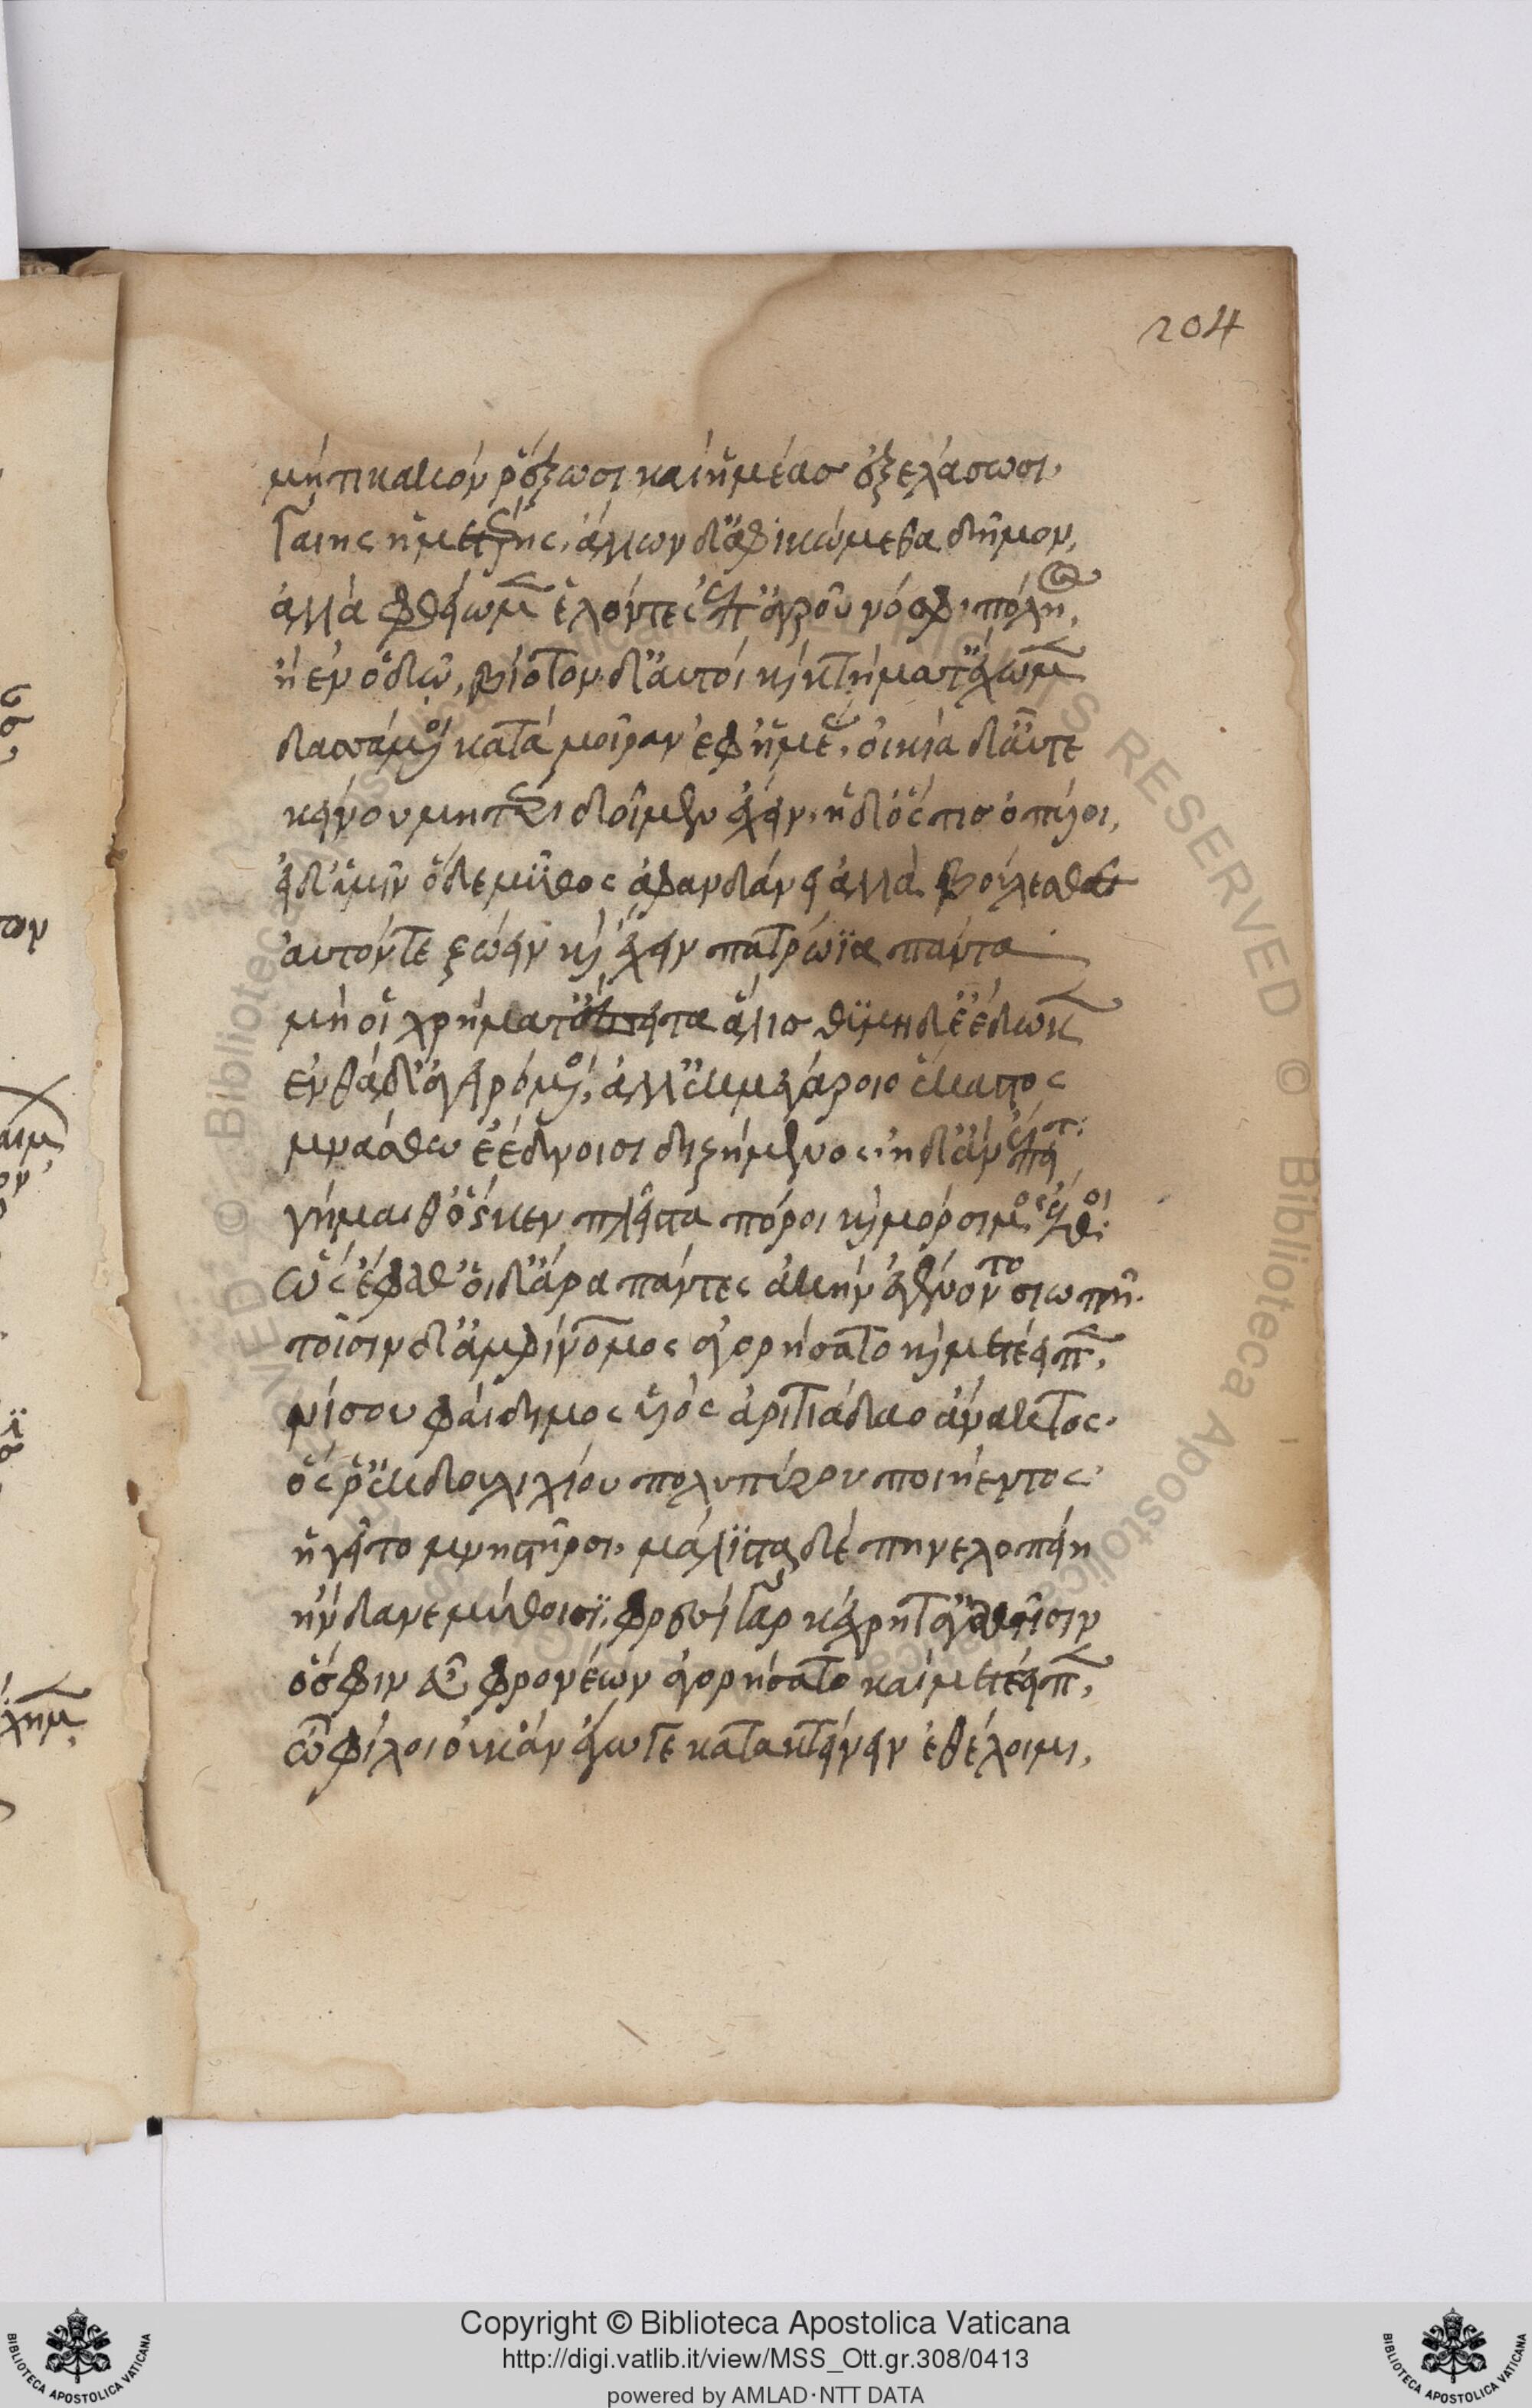 204
μή τι κακὸν ῥέξωσι καὶ ἡμέας ἐξελάσωσι,
γαίης ἡμετέρης, ἄλλων δ' ἀφικώμεθα δῆμον,
ἀλλὰ φθέωμεν ἑλόντες ἐπ' ἀγροῦ νόσφι πόληος,
ἢ ἐν ὁδῶ, βίοτον δ' αὐτοὶ καὶ κτήματ' ἔχωμεν
δασσάμενοι κατὰ μοῖραν ἐφ' ἡμέας, οἰκία δ' αὖτε
κείνου μητέρι δοῖμεν ἔχειν, ἠδ' ὅς τις ὀπυίοι,
εἰ δ' ὑμῖν ὅδε μῦθος ἀφανδάνει ἀλλὰ βούλεσθε
αὐτόν τε ζώειν καὶ ἔχειν πατρώϊα πάντα
μή οἱ χρήματ' ἔπειτα ἅλις θυμηδέ' ἔδωμεν
ἐνθάδ' ἀγειρόμενοι, ἀλλ' ἐκ μεγάροιο ἕκαστος
μνάσθω ἐέδνοισι διζήμενος, ἡ δ' ἂν ἔπειτα
γήμαιθ' ὅς κεν πλεῖστα πόροι καὶ μόρσιμος ἔλθοι
ὣς ἔφαθ' οἱ δ' ἄρα πάντες ἀκὴν ἐγένοντο σιωπῆ.
τοῖσιν δ' ἀμφίνομος ἀγορήσατο καὶ μετέειπεν,
νίσου φαίδιμος υἱὸς ἀρητιάδαο ἄνακτος.
ὅς ῥ' ἐκ δουλιχίου πολυπύρου ποιήεντος
ἡγεῖτο μνηστῆρσι, μάλιστα δὲ πηνελοπείη
ἥνδανε μύθοισι, φρεσὶ γὰρ κέχρητ' ἀγαθῆσιν
ὅ σφιν εὖ φρονέων ἀγορήσατο καὶ μετέειπεν,
ὦ φίλοι οὐκ ἂν ἔγωγε κατακτείνειν ἐθέλοιμι,
Copyright © Biblioteca Apostolica Vaticana
http://digi.vatlib.it/view/MSS_Ott.gr.308/0413
powered by AMLAD·NTT DATA